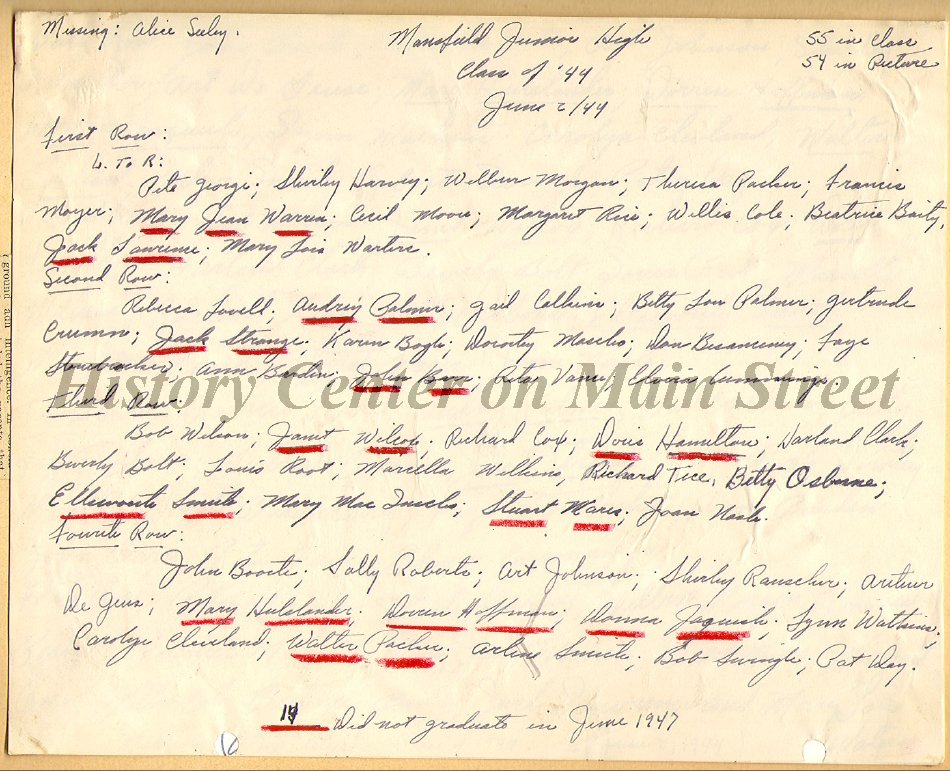 Missing: Alice Seeley.
Mansfield Junior High
55 in Class
54 in Picture
Class of '44
June 2/44
First Row:
L. To R:
Pete Georgi; Shirley Harvey; Wilbur Morgan; Theresa Packer; Francis
Moyer; Mary Jean Warren; Cecil Moore; Margaret Rice; Willis Cole; Beatrice Baity,
Jack Lawrence; Mary Lois Warters.
Second Row:
Rebecca Lovell; Audrey Palmer; Gail Calkins; Betty Lou Palmer; Gertrude
Crumm; Jack Strange; Karen Bogle; Dorothy; Don; Faye
Ann; John; Rita Vance; Gloria Cummings.
History Center on Main Street
Third Row:
Bob Wilson; Janet Wilcox; Richard Cox; Doris Hamilton; Harland Clark;
Beverly Bolt; Louis Root; Marcella Wilkins, Richard Tice, Betty Osborne;
Ellsworth Smith; Mary Mac; Stuart; Joan Nash.
Fourth Row:
John; Sally Roberts; Art Johnson; Shirley Rauscher; Arthur
De Geus; Mary Hulslander; Doreen Hoffman; Donna Jaquish; Lynn Watkins;
Carolyn Cleveland; Walter Packer; Arline Smith; Bob Swingle; Pat Day.
Did not graduate in June 1947